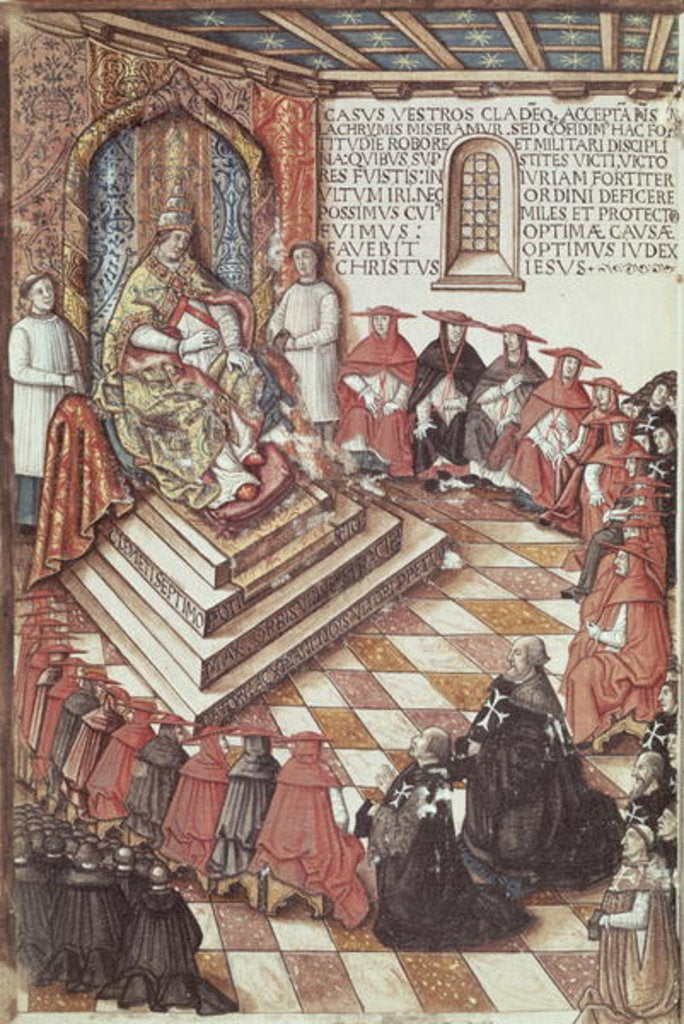 CASVS VESTROS CLADEQ̄ ACCEPTA
LACHRVMIS MISERAMVR. SED COFIDIM̄ HAC FO
TITVDIE ROBORE ET MILITARI DISCIPLI
NA: QVIBVS SVP STITES VICTI, VICTO
RES FVISTIS: IN IVRIAM FORTITER
VLTVM IRI. NEC ORDINI DEFICERE
POSSIMVS CVI MILES ET PROTECTO
FVIMVS: OPTIMÆ CAVSÆ
FAVEBIT OPTIMVS IVDEX
CHRISTVS IESVS
CLEMETI SEPTIMO PONT
MAX ORBIS